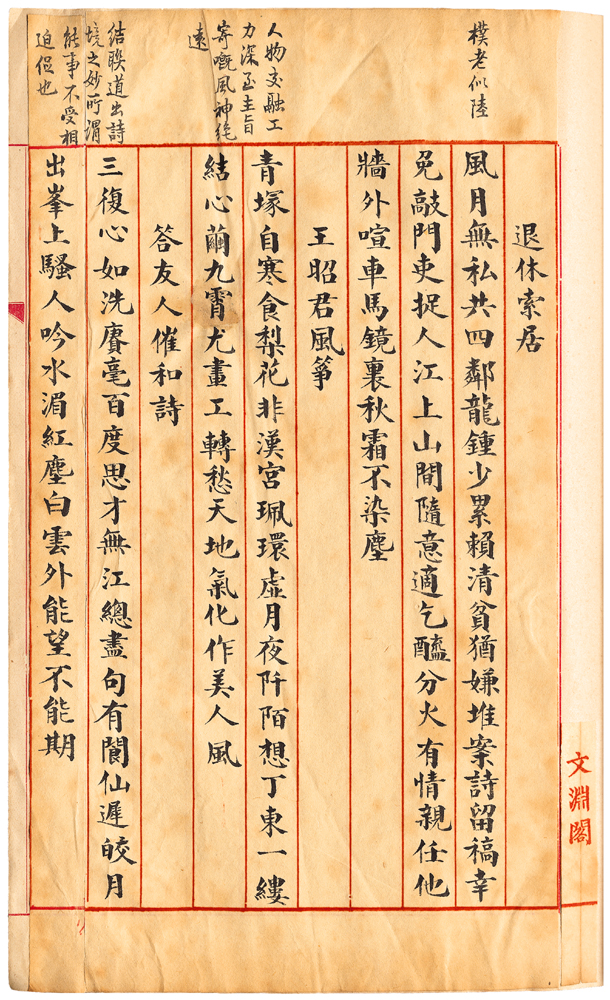 樸老似陸
人物交融工
力深至主旨
寄嘅風神絶
遠
結联道出詩
境之妙所謂
能事不受相
迫促也
退休索居
風月無私共四鄰龍鍾少累賴清貧猶嫌堆案詩留稿幸
免敲門吏捉人江上山間隨意適乞醯分火有情親任他
牆外喧車馬鏡裏秋霜不染塵
王昭君風箏
青塚自寒食梨花非漢宮珮環虛月夜阡陌想丁東一縷
結心繭九霄尤畫工轉愁天地氣化作美人風
答友人催和詩
三復心如洗賡毫百度思才無江總盡句有閬仙遲皎月
出峯上騷人吟水湄紅塵白雲外能望不能期
文淵閣